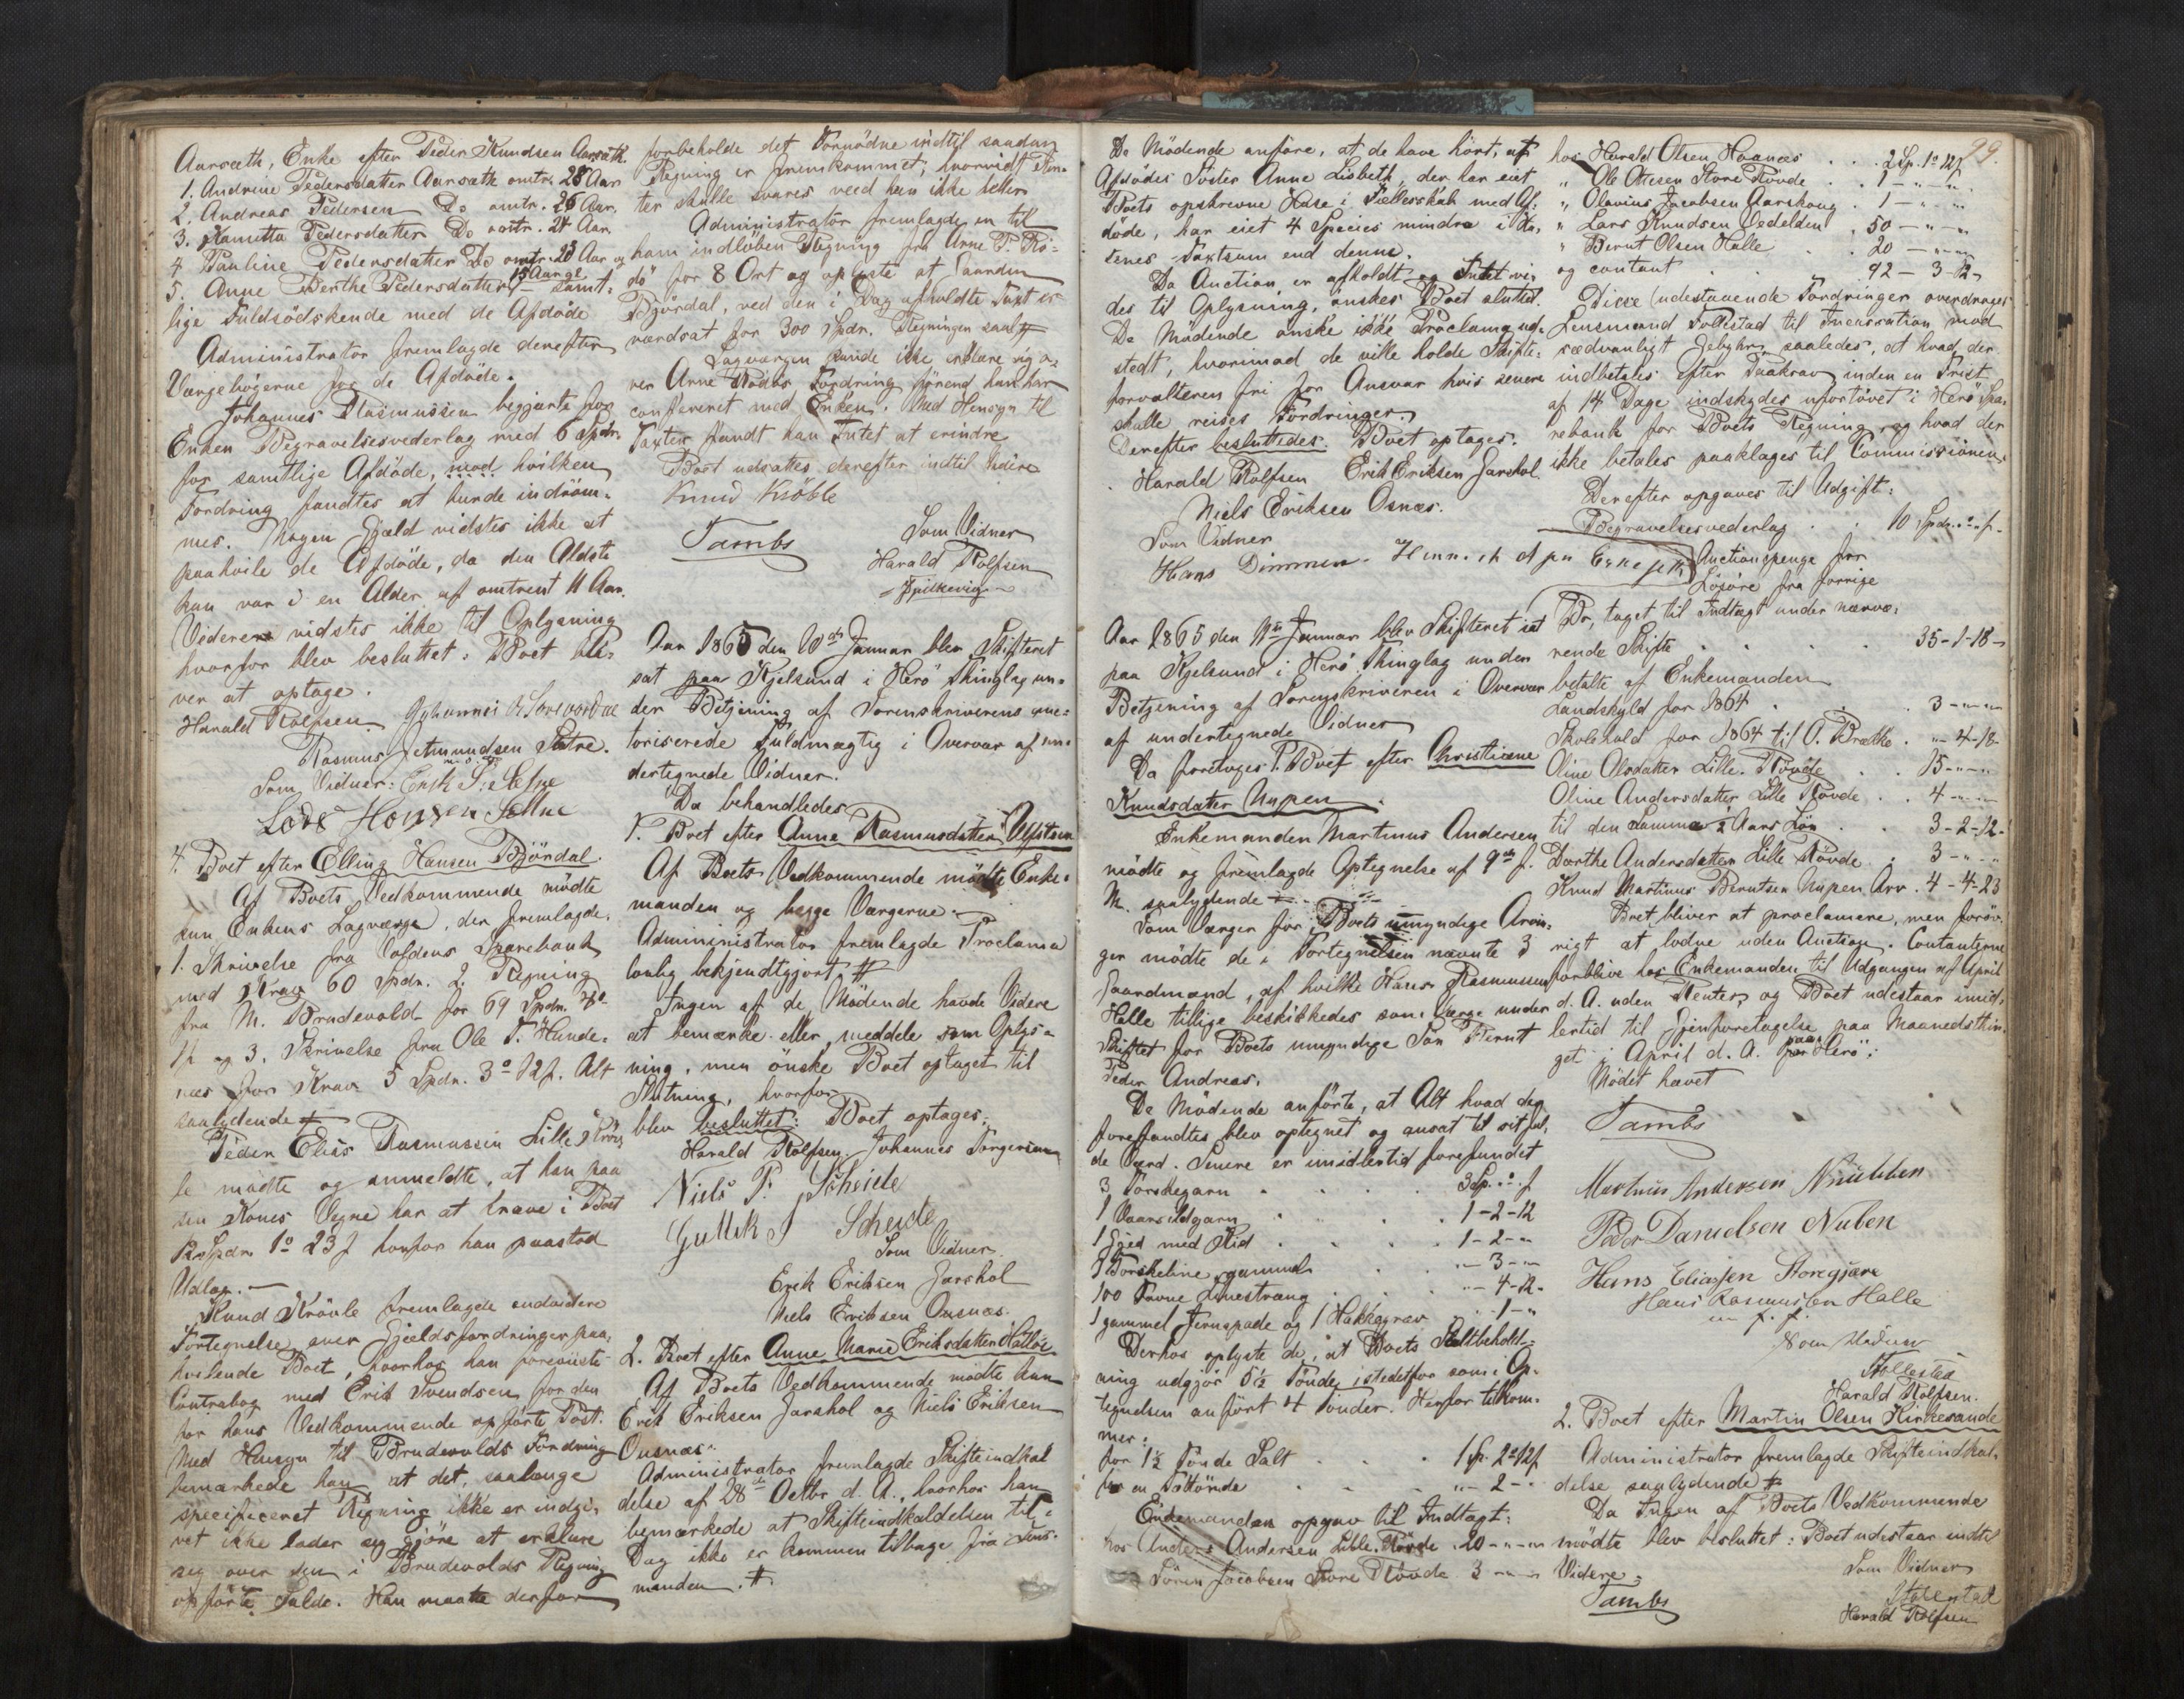 Aarsæth, Enke efter Peder Knudsen Aarsæth.
1. Andrine Pedersdatter Aarsæth omtr. 28 Aar
2. Andreas Pedersen Do omtr. 26 Aar.
3. Pedersdatter Do omtr. 24 Aar.
4 Pauline Pedersdatter Do omtr. 23 Aar og
5. Anne Berthe Pedersdatter 15 Aar samt-
lige Fuldsødskende med de Afdøde
Administrator fremlagde derefter
for de Afdøde.
Johannes Rasmussen begjærte for
Enken Begravelsesvederlag med 6 Spdr.
for samtlige Afdøde, mod hvilken
Fordring fandtes at kunde indrøm-
mes. Nogen Gjæld vidstes ikke at
paahvile de Afdøde, da den Ældste
kun var i en Alder af omtrent 11 Aar.
Videre vidstes ikke til Oplysning
hvorfor blev besluttet: Boet bli-
ver at optage.
Harald Rolfsen
Rasmus Jetmundsen Sætre.
Som Vidner:
4. Boet efter Elling Hansen Bjørdal.
Af Boets Vedkommende mødte
kun Enkens Lagværge, der fremlagde.
1. Skrivelse fra Voldens Sparebank
med Krav 60 Spdr. 2. Regning
fra M. Brudevold for 69 Spdr.
og 3. Skrivelse fra Ole T. Hunde-
næs for Krav 5 Spdr. 3o 12ſ. Alt
saalydende #
Peder Elias Rasmussen Lille Røv-
de mødte og anmeldte, at han paa
sin Kones Vegne har at kræve i Boet
12 Spdr. 1o 23ſ hvorfor han paastod
Udlæg.
Knud Krøvle fremlagde endvidere
Fortegnelse over Gjældsfordringer paa-
hvilende Boet, hvorhos han foreviiste
Contrabog med Erik Svendsen for den
for hans Vedkommende opførte Post.
Med Hensyn til Brudevolds Fordring
bemærkede han, at det, saalænge
specificeret Regning ikke er indgi-
vet ikke lader sig gjøre at erklære
sig over den i Brudevolds Regning
opførte Saldo. Han maatte derfor
forbeholde det Fornødne indtil saadan
Regning er fremkommet, hvorvidt Ren-
ter skulle svares veed han ikke heller
Administrator fremlagde en til
ham indløben Regning fra Arne P. Rø-
dø for 8 Ort og oplyste at Gaarden
Bjørdal, ved den i Dag afholdte Taxt er
værdsat for 300 Spdr. Regningen saal. #
Lagværgen kunde ikke erklære sig o-
ver Arne Rødøs Fordring førend han har
confereret med Enken. Med Hensyn til
Taxten fandt han Intet at erindre
Boet udsattes derefter indtil Videre
Knud Krøvle
Tambs
Som Vidner
Harald Rolfsen
Spilkevig
Aar 1865 den 10de Januar blev Skifteret
sat paa Kjelsund i Herø Thinglag un-
der Betjening af Sorenskriverens auc-
toriserede Fuldmægtig i Overvær af un-
dertegnede Vidner.
Da behandledes
1. Boet efter Anne Rasmusdatter Ulfsteen
Af Boets Vedkommende mødte Enke-
manden og begge Værgerne.
Administrator fremlagde Proclama
lovlig bekjendtgjort. #
Ingen af de Mødende havde Videre
at bemærke eller meddele som Oplys-
ning, men ønske Boet optaget til
Slutning, hvorfor
blev besluttet: Boet optages.
Harald Rolfsen. Johannes Torgersen
Niels P. Scheide
Gullik J Scheide
Som Vidner.
Erik Eriksen Jarshol
Niels Eriksen Ousnæs.
2. Boet efter Anne Marie Eriksdatter
Af Boets Vedkommende mødte kun
Erik Eriksen Jarshol og Niels Eriksen
Ousnæs.
Administrator fremlagde Skifteindkal
delse af 28de Octbr d. A., hvorhos han
bemærkede at Skifteindkaldelsen til
Dag ikke er kommen tilbage fra Lens-
manden. #
De Mødende anføre, at de have hørt, at
Afdødes Søster Anne Lisbeth, der har eiet
Boets opskrevne i Fællesskab med Af-
døde, har eiet 4 Species mindre i
senes Taxtsum end denne.
Da Auction er afholdt og Intet vi-
des til Oplysning, ønskes Boet sluttet.
De Mødende ønske ikke Proclama ud-
stedt, hvorimod de ville holde Skifte-
forvalteren fri for Ansvar hvis senere
skulle reises Fordringer.
Derefter besluttedes: Boet optages.
Harald Rolfsen Erik Eriksen Jarshol
Niels Eriksen Osnæs.
Som Vidner
Hans Dimmen.
Aar 1865 den 11te Januar blev Skifteret sat
paa Kjelsund i Herø Thinglag under
Betjening af Sorenskriveren i Overvær
af undertegnede Vidner
Da foretoges 1. Boet efter Christiane
Knudsdatter Nupen.
Enkemanden Martinus Andersen
mødte og fremlagde Optegnelse af 9de f.
M. saalydende #
Som Værger for Boets umyndige Arvin-
ger mødte de i Fortegnelsen nævnte 3
Gaardmænd, af hvilke Hans Rasmussen
Halle tillige beskikkedes som Værge under
Skiftet for Boets umyndige Søn Bernt
Peder Andreas.
De Mødende anførte, at Alt hvad der
forefandtes blev optegnet og ansat til sit ful-
de Værd. Senere er imidlertid forefundet
3 Torskegarn 3 Sp. " o " ſ
1 Vaarsildgarn 1-2-12
1 Gjed med Kid 1-2-"
1 Torskeline gammel "-3-"
100 Favne Linestræng "-4-12-
1 gammel Jernspade og 1 Hakkegrev "-1-"
Derhos oplyste de, at Boets Saltbehold-
ning udgjør 5½ Tønde istedetfor som i Op-
tegnelsen anført 4 Tønder. Herfor tilkom-
mer:
for 1½ Tønde Salt 1 Sp. 2o 12ſ
for en Tøttønde "-2-"
Enkemanden opgav til Indtægt:
hos Anders Andersen Lille Røvde 20-"-"
" Søren Jacobsen Store Røvde 3-"-"
99.
hos Harald Olsen Haanæs 2 Sp. 1o 12ſ
" Ole Ottesen Store Røvde 1-"-"
" Olavius Jacobsen Aarskoug 1-"-"
" Lars Knudsen Vedelden 50-"-"
" Bernt Olsen Halle 20-"-"
og contant 92-3-12
Disse udestaaende Fordringer overdrages
Lensmand Follestad til Incassation mod
sædvanligt Gebyhr, saaledes, at hvad der
indbetales efter Paakrav inden en Frist
af 14 Dage indskydes ufortøvet i Herø Spa-
rebank for Boets Regning og hvad der
ikke betales paaklages til Commissionen.
Derefter opgaves til Udgift:
Begravelsesvederlag 10 Spdr. " o " ſ.
Auctionspenge for
Løsøre fra forrige
Bo, taget til Indtægt under nærvæ-
rende Skifte 35-1-18
betalte af Enkemanden
Landskyld for 1864 3-"-"
Skolehold for 1864 til O. Brække "-4-18-
Oline Olsdatter Lille-Røvde 15-"-"
Oline Andersdatter Lille Røvde 4-"-"
til den Samme ½ Aars Løn 3-2-12-
Dorthe Andersdatter Lille Røvde 3-"-"
Knud Martinus Berntsen Nupen Arv 4-4-23
Boet bliver at proclamere, men forøv-
rigt at lodne uden Auction. Contanterne
forblive hos Enkemanden til Udgangen af April
d. A. uden Renter, og Boet udestaar imid-
lertid til Gjenforetagelse paa Maanedsthin-
get i April d. A. paa Herø;
Mødet hævet
Tambs
Martinus Andersen
Peder Danielsen Nuben
Hans Eliassen Storegjære
Hans Rasmussen Halle
m. f. P.
Som Vidner
Follestad
Harald Rolfsen.
2. Boet efter Martin Olsen Kirkesande
Administrator fremlagde Skifteindkal-
delse saalydende #
Da Ingen af Boets Vedkommende
mødte blev besluttet: Boet udestaar indtil
Videre.
Tambs
Som Vidner
Follestad
Harald Rolfsen